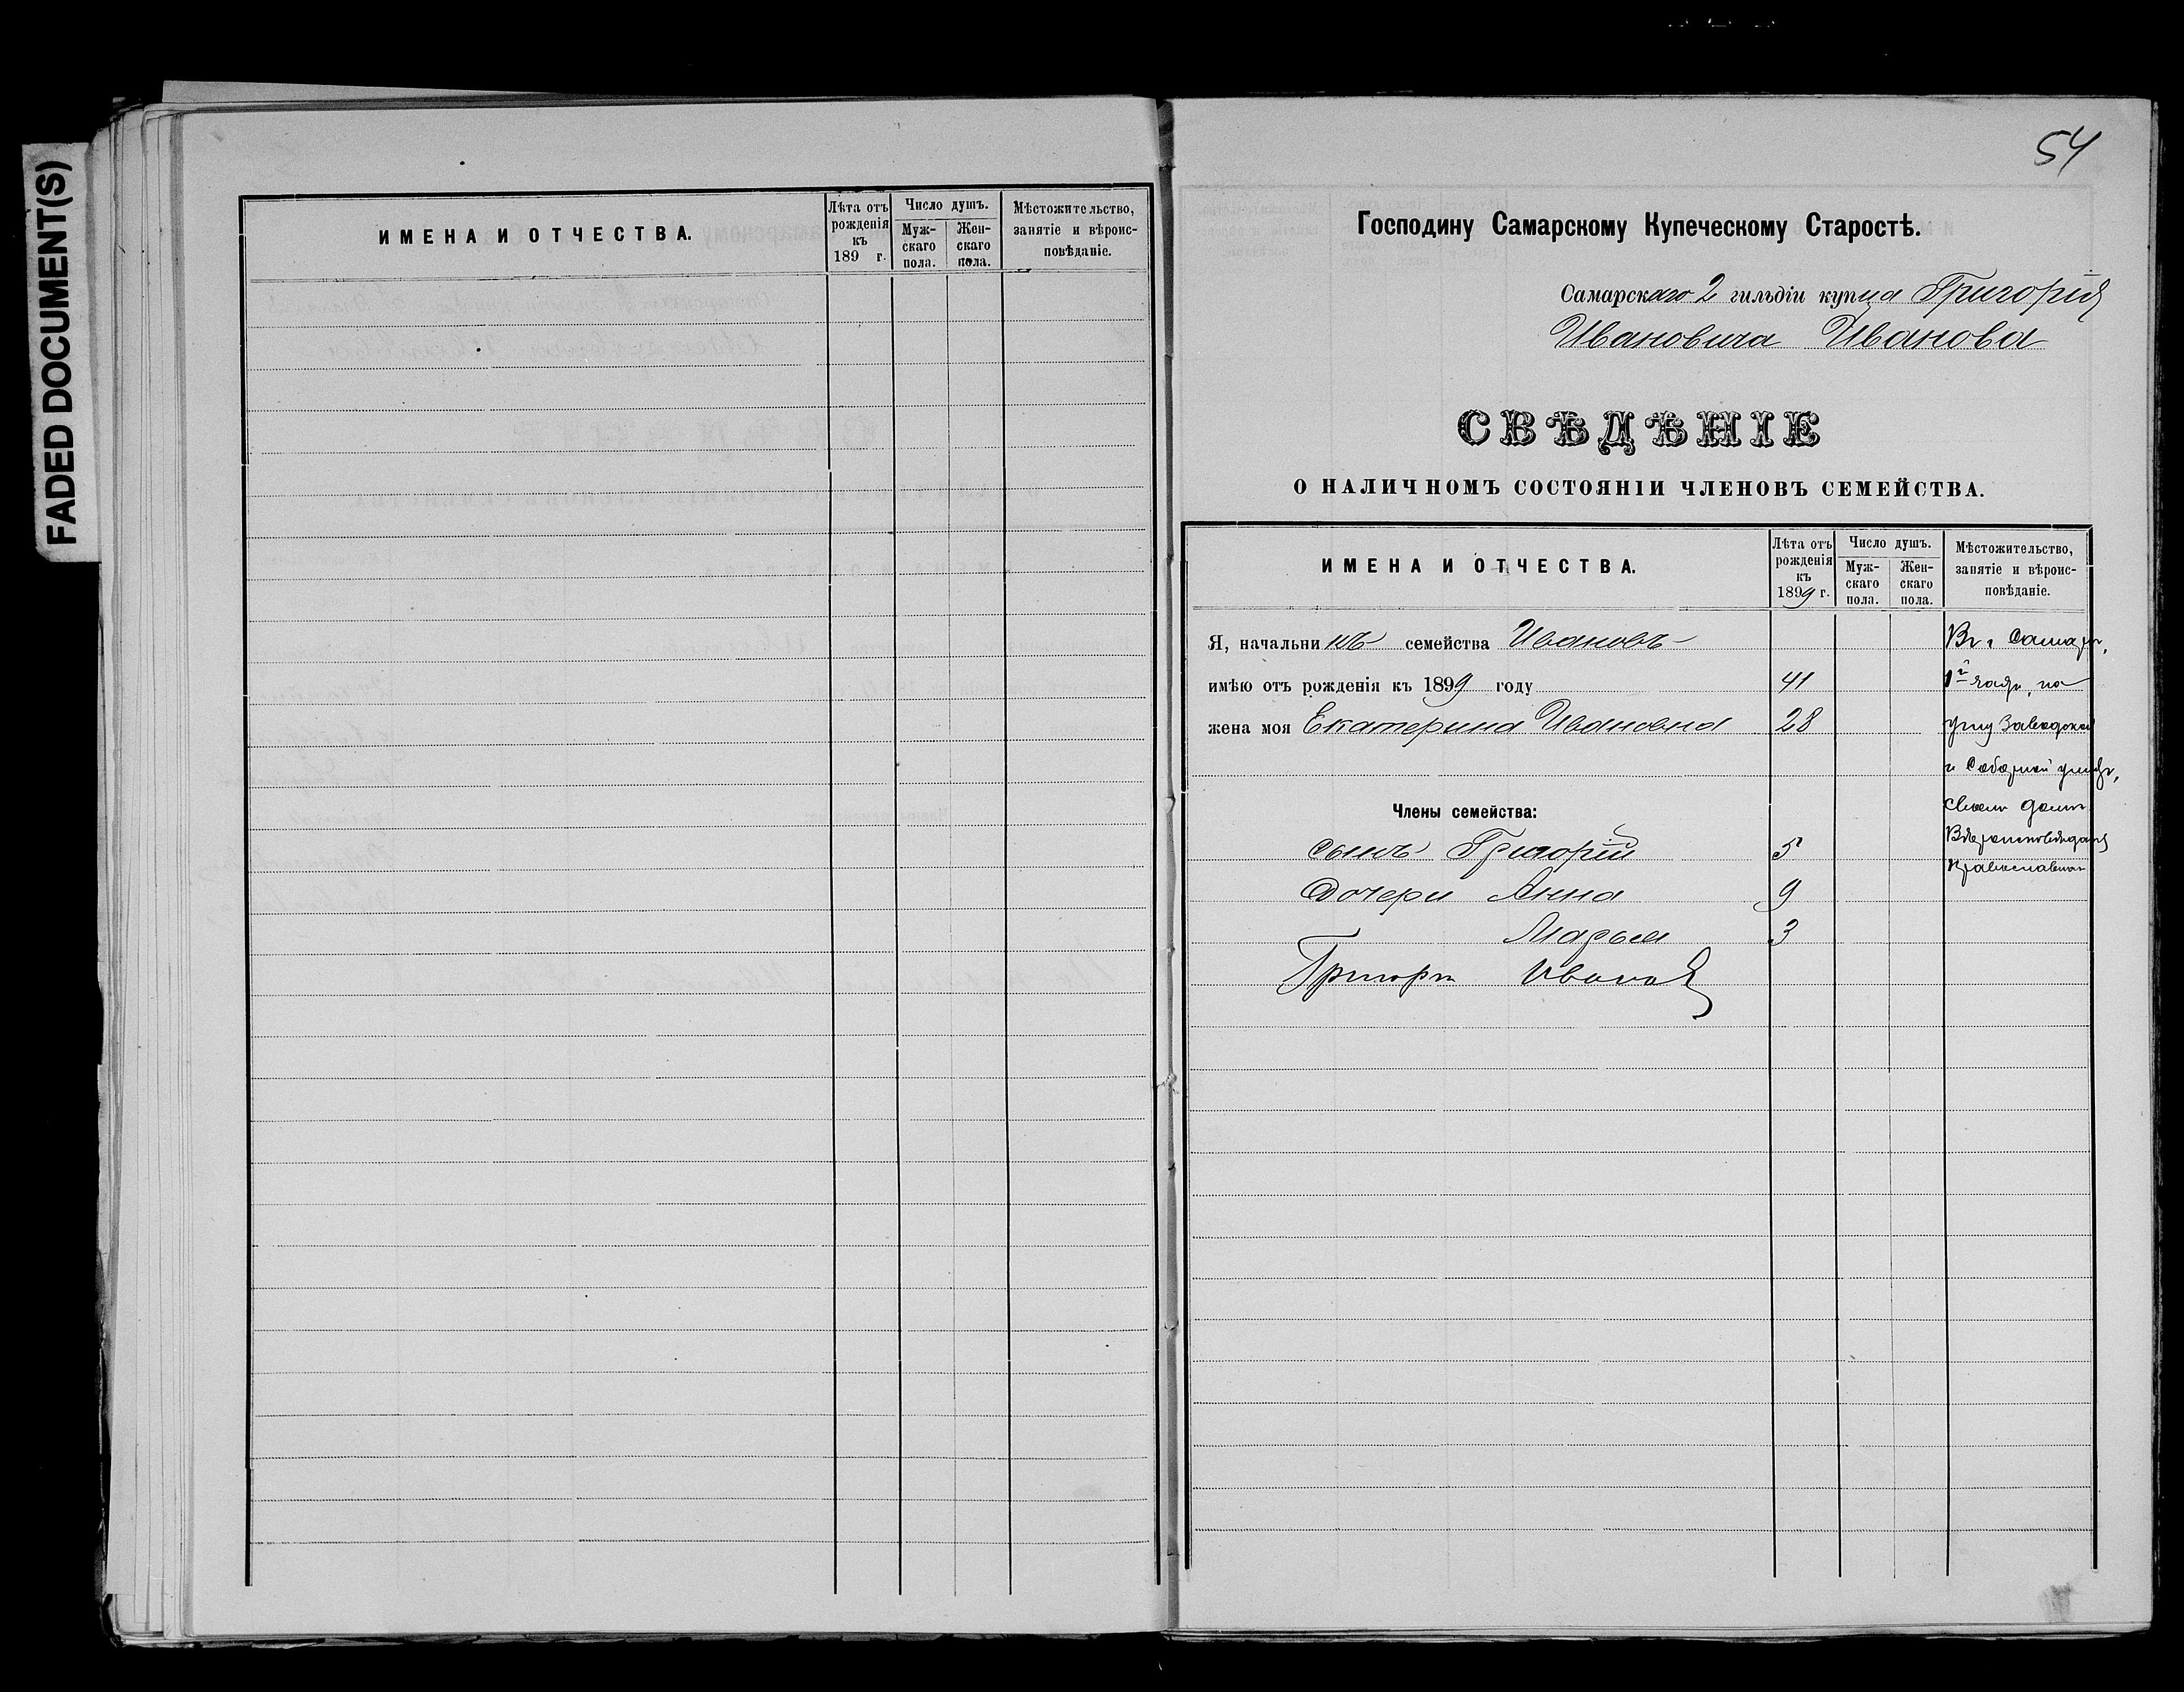 FADED DOCUMENT(S)
ИМЕНА И ОТЧЕСТВА.
Лѣта отъ
рожденія
къ
189 г.
Число душъ.
Муж-
скаго
пола.
Жен-
скаго
пола.
Мѣстожительство,
занятіе и вѣроис-
повѣданіе.
54
Господину Самарскому Купеческому Старостѣ.
Самарскаго 2 гильдіи купца Григорія
Ивановича Иванова
СВѢДѢНІЕ
О НАЛИЧНОМЪ СОСТОЯНІИ ЧЛЕНОВЪ СЕМЕЙСТВА.
ИМЕНА И ОТЧЕСТВА.
Лѣта отъ
рожденія
къ
1899 г.
Число душъ.
Муж-
скаго
пола.
Жен-
скаго
пола.
Мѣстожительство,
занятіе и вѣроис-
повѣданіе.
Я, начальникъ семейства Ивановъ
Въ г. Самарѣ,
имѣю отъ рожденія къ 1899 году 41
1й части, на
жена моя Екатерина Ивановна 28
углу Заводской
и Соборной улицъ,
Члены семейства:
своемъ домѣ
Вѣроисповѣданія
сынъ Григорій 5
православнаго
Дочери Анна 9
Марья 3
Григорій Ивановъ